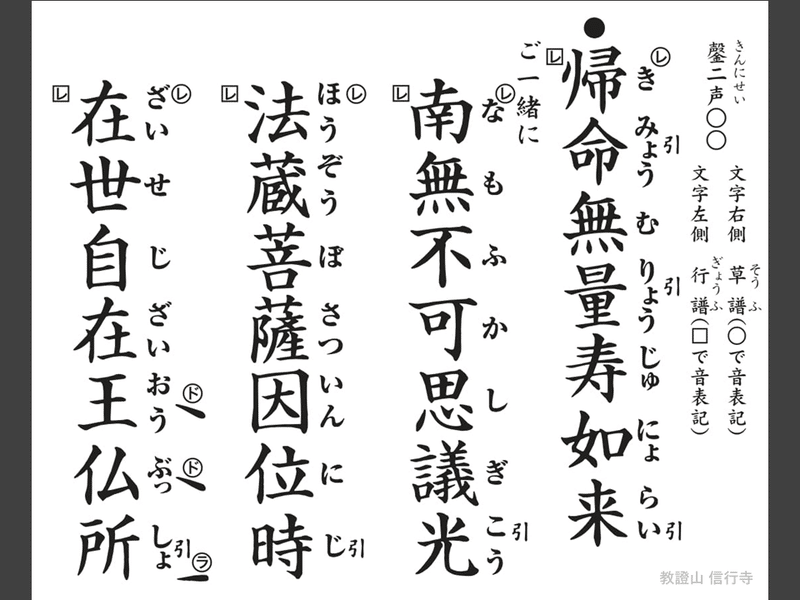 きんにせい
鏧二声〇〇
文字右側 草譜(〇で音表記)
そうふ
文字左側 行譜(□で音表記)
ぎょうふ
●
帰命無量寿如来
レ き みょう 引 む りょう 引 じゅ にょ らい 引
レ
ご一緒に
南無不可思議光
レ な も ふ か し ぎ こう 引
レ
法蔵菩薩因位時
レ ほう ぞう ぼ さつ いん に じ 引
レ
在世自在王仏所
レ ざい せ じ ざい おう ド ぶっ ド しょ 引 ラ
レ
教證山 信行寺